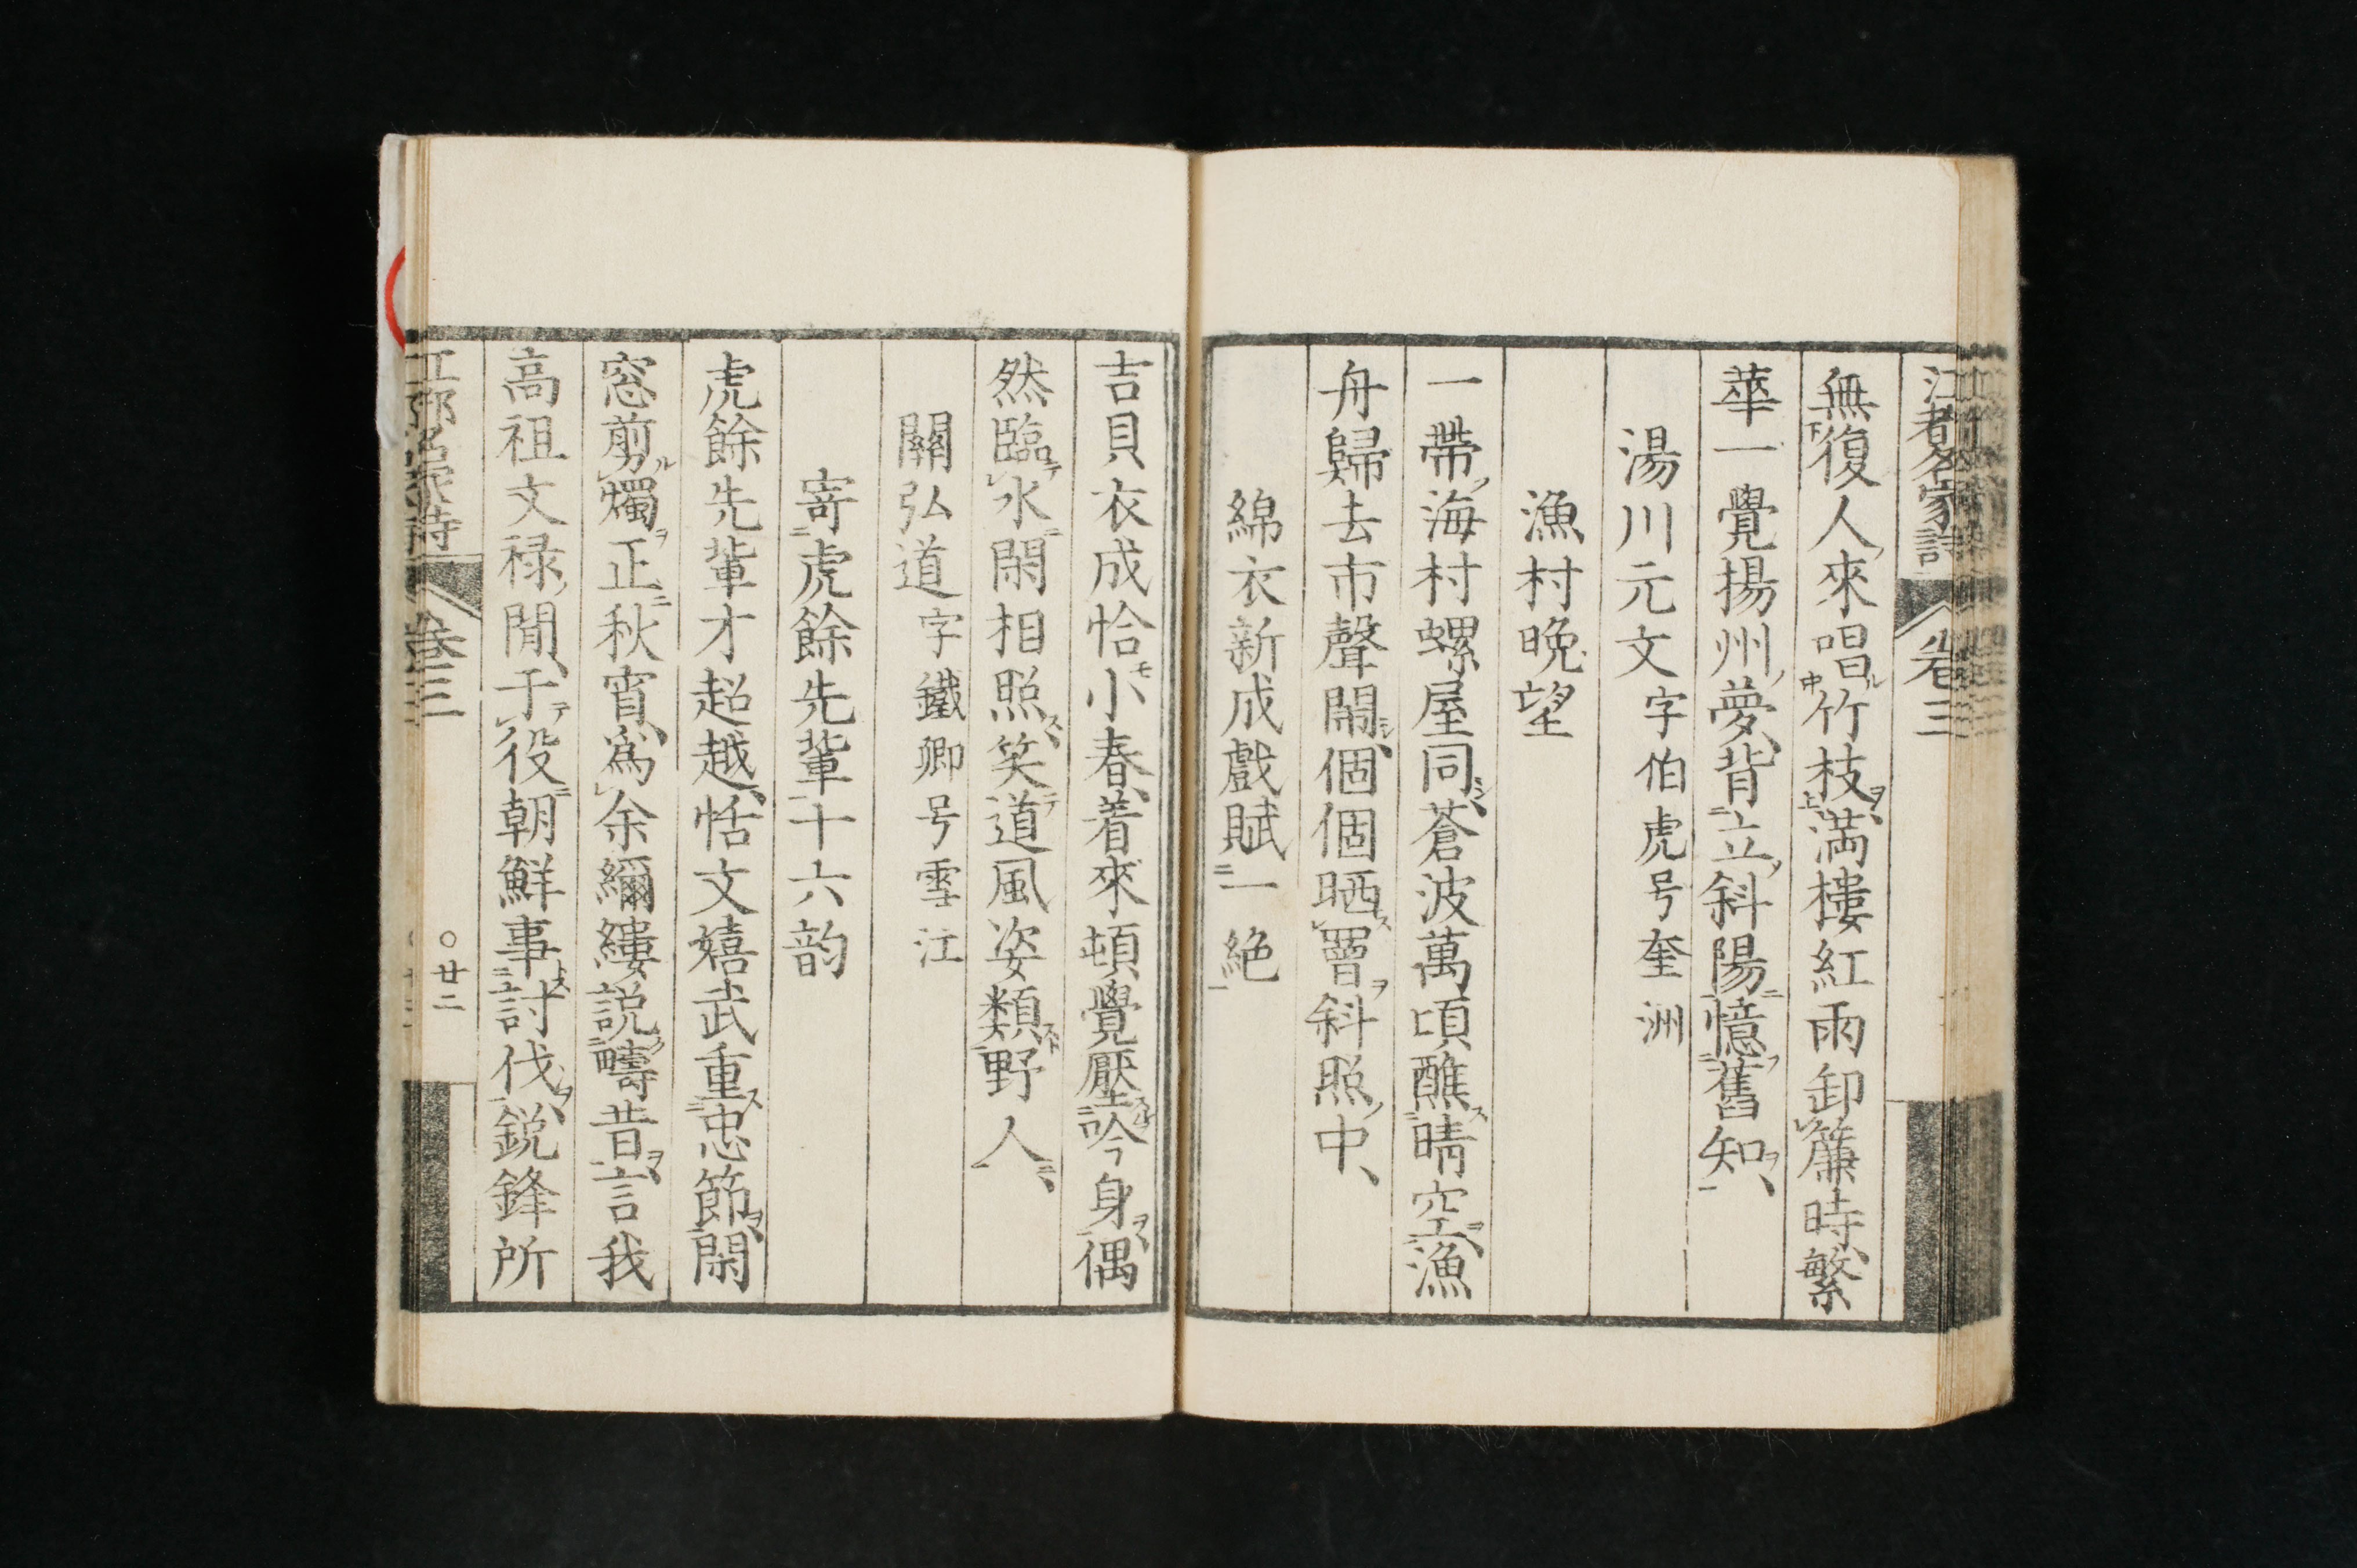 無復人來唱竹枝満樓紅雨卸簾時繁
華一覺揚州夢背立斜陽憶舊知
湯川元文字伯虎号奎洲
漁村晩望
一帶海村螺屋同蒼波萬頃醮晴空漁
舟歸去市聲閙個個晒罾斜照中
綿衣新成戲賦一絶
吉貝衣成恰小春着來頓覺壓吟身偶
然臨水閑相照笑道風姿類野人
關弘道字鐵卿号雪江
寄虎餘先輩十六韵
虎餘先輩才超越恬文嬉武重忠節閑
窓剪燭正秋宵爲余縷縷説疇昔言我
高祖文禄間于役朝鮮事討伐鋭鋒所
江都名家詩 卷三 ○廿二